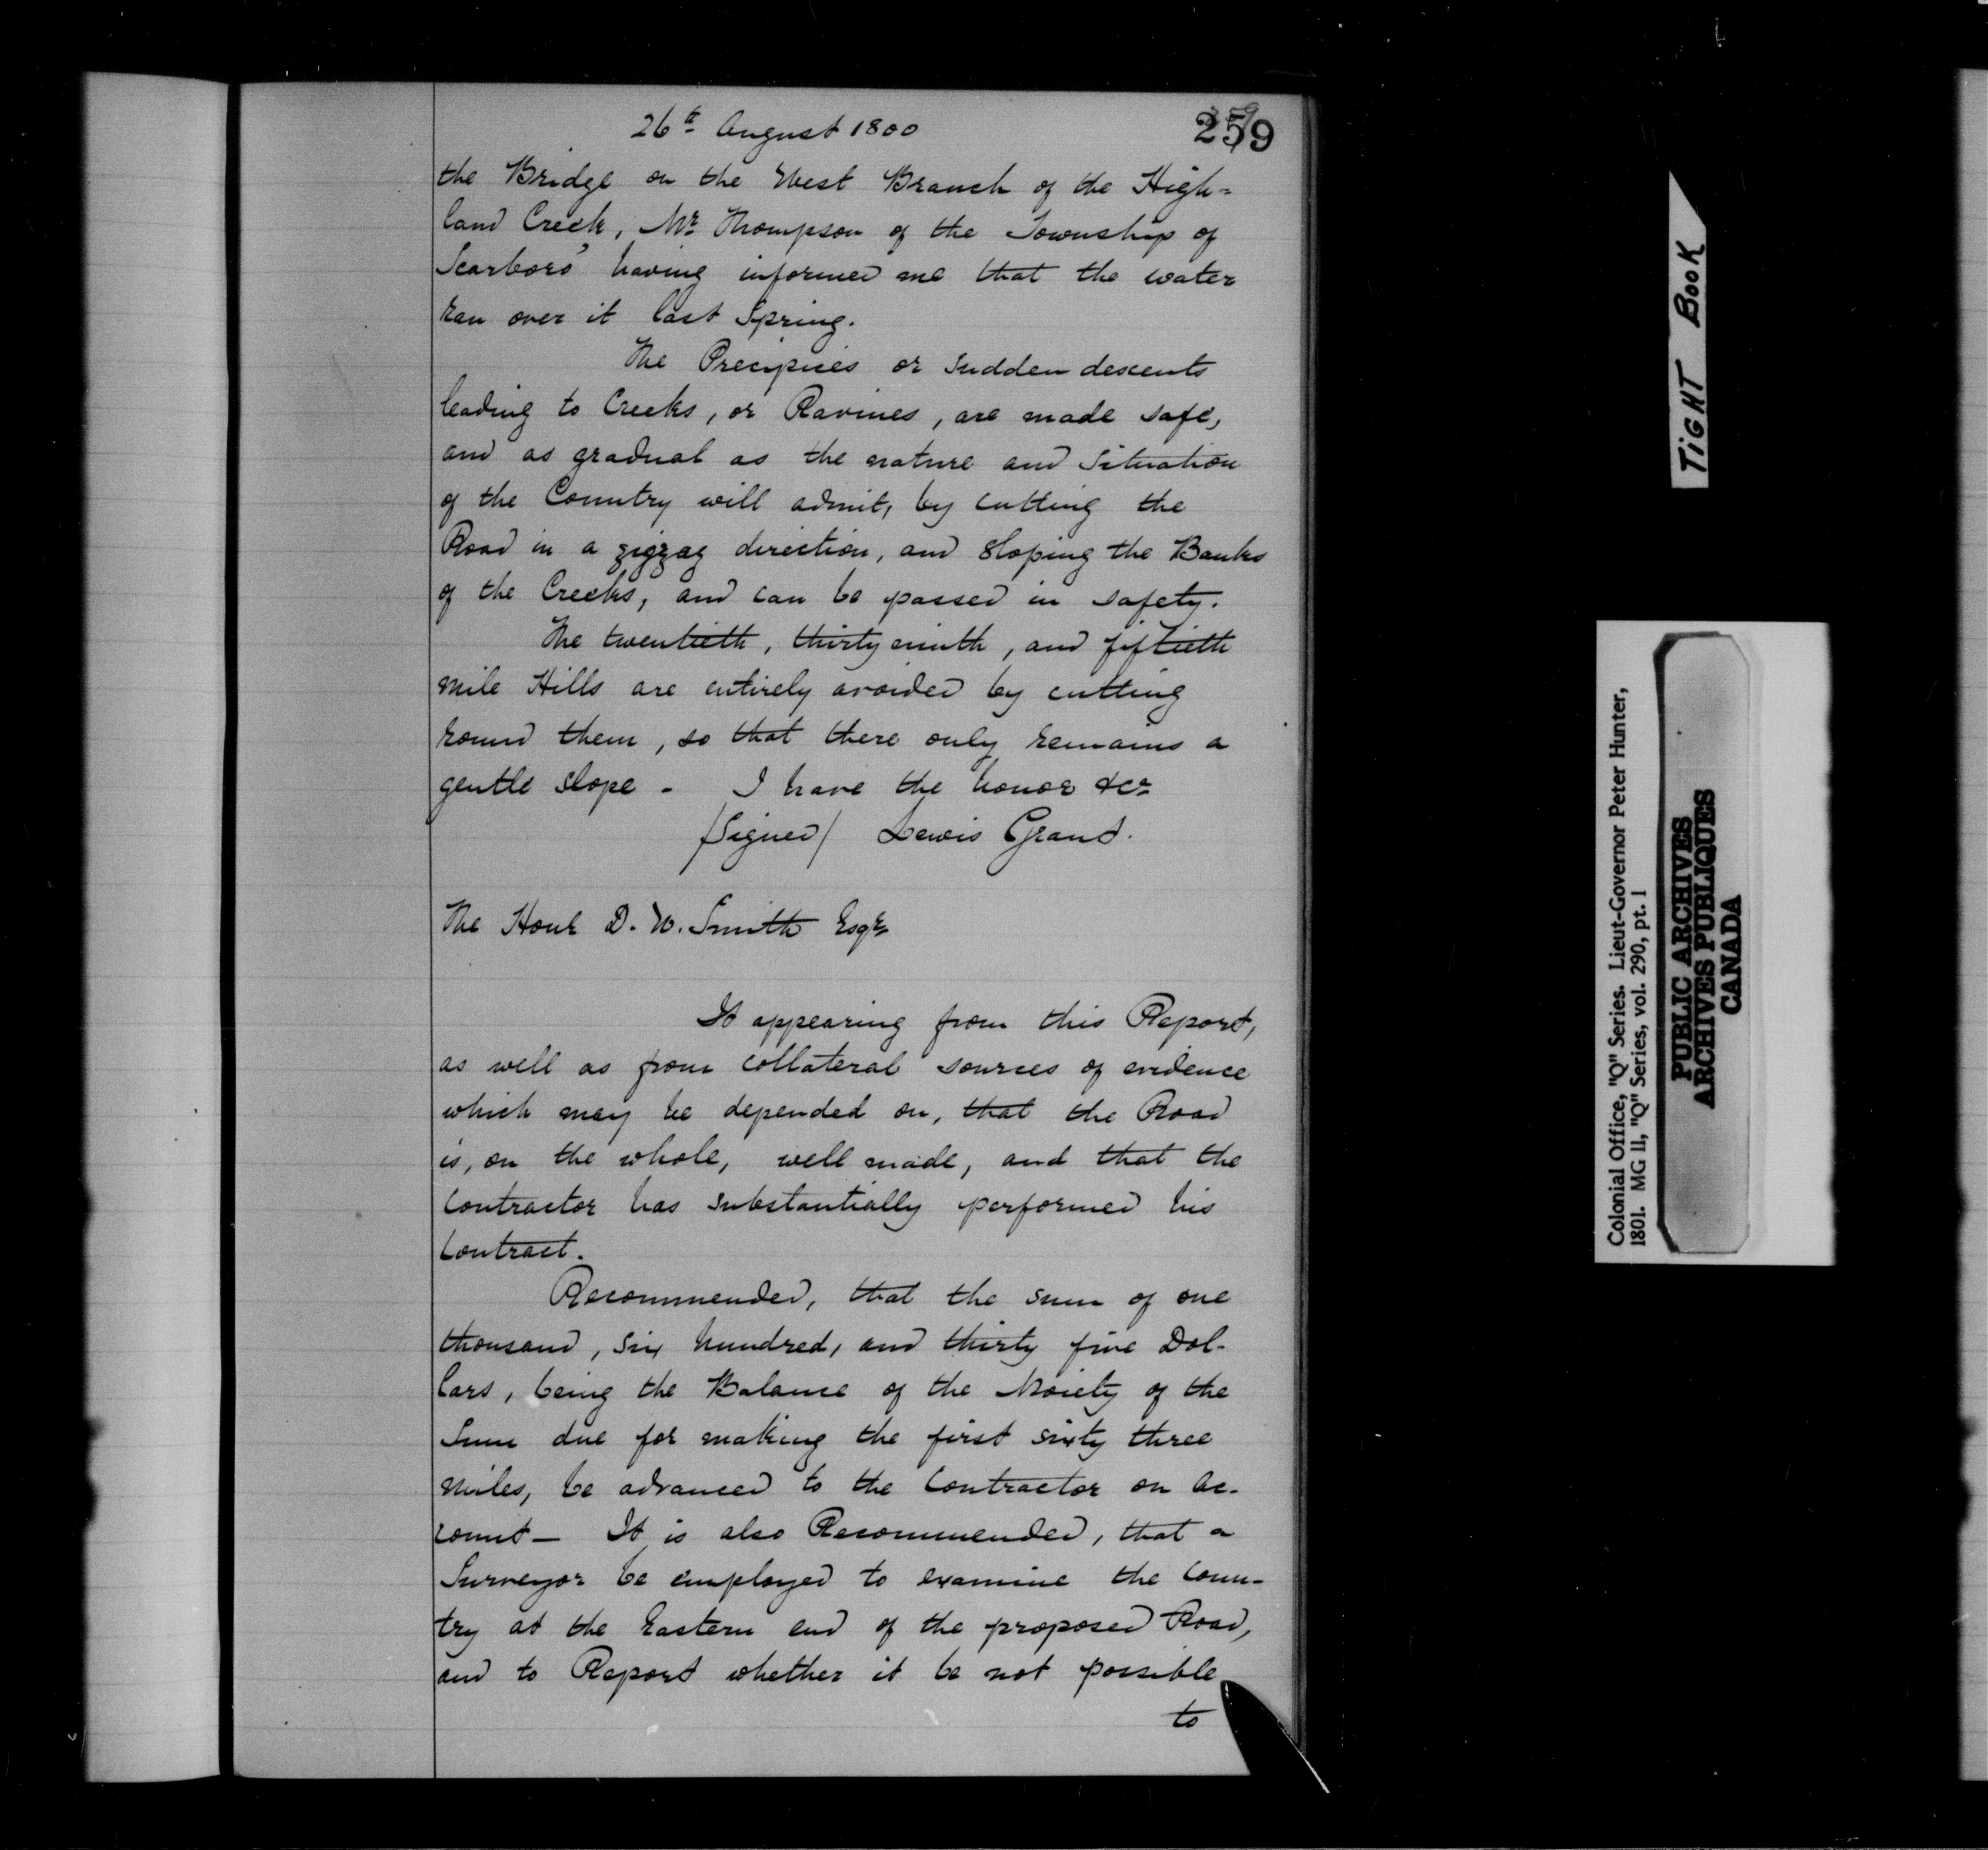 26th August 1800
259
the Bridge on the West Branch of the High=
land Creek, Mr Thompson of the Township of
Scarboro' having informed me that the water
ran over it last Spring.
The Precipices or sudden descents
leading to Creeks, or Ravines, are made safe,
and as gradual as the nature and Situation
of the Country will admit, by cutting the
Road in a zigzag direction, and sloping the Banks
of the Creeks, and can be passed in safety.
The twentieth, thirty ninth, and fiftieth
mile Hills are entirely avoided by cutting
round them, so that there only remains a
gentle slope - I have the honor &cr
/Signed/ Lewis Grant.
The Honl D. W. Smith Esqr
It appearing from this Report,
as well as from collateral sources of evidence
which may be depended on, that the Road
is, on the whole, well made, and that the
Contractor has substantially performed his
Contract.
Recommended, that the sum of one
thousand, six hundred, and thirty five Dol-
lars, being the Balance of the Moiety of the
Sum due for making the first sixty three
miles, be advanced to the Contractor on ac-
count - It is also Recommended, that a
Surveyor be employed to examine the Coun-
try at the Eastern end of the proposed Road,
and to Report whether it be not possible
to
TIGHT BOOK
Colonial Office, "Q" Series. Lieut-Governor Peter Hunter,
1801. MG 11, "Q" Series, vol. 290, pt. 1
PUBLIC ARCHIVES
ARCHIVES PUBLIQUES
CANADA